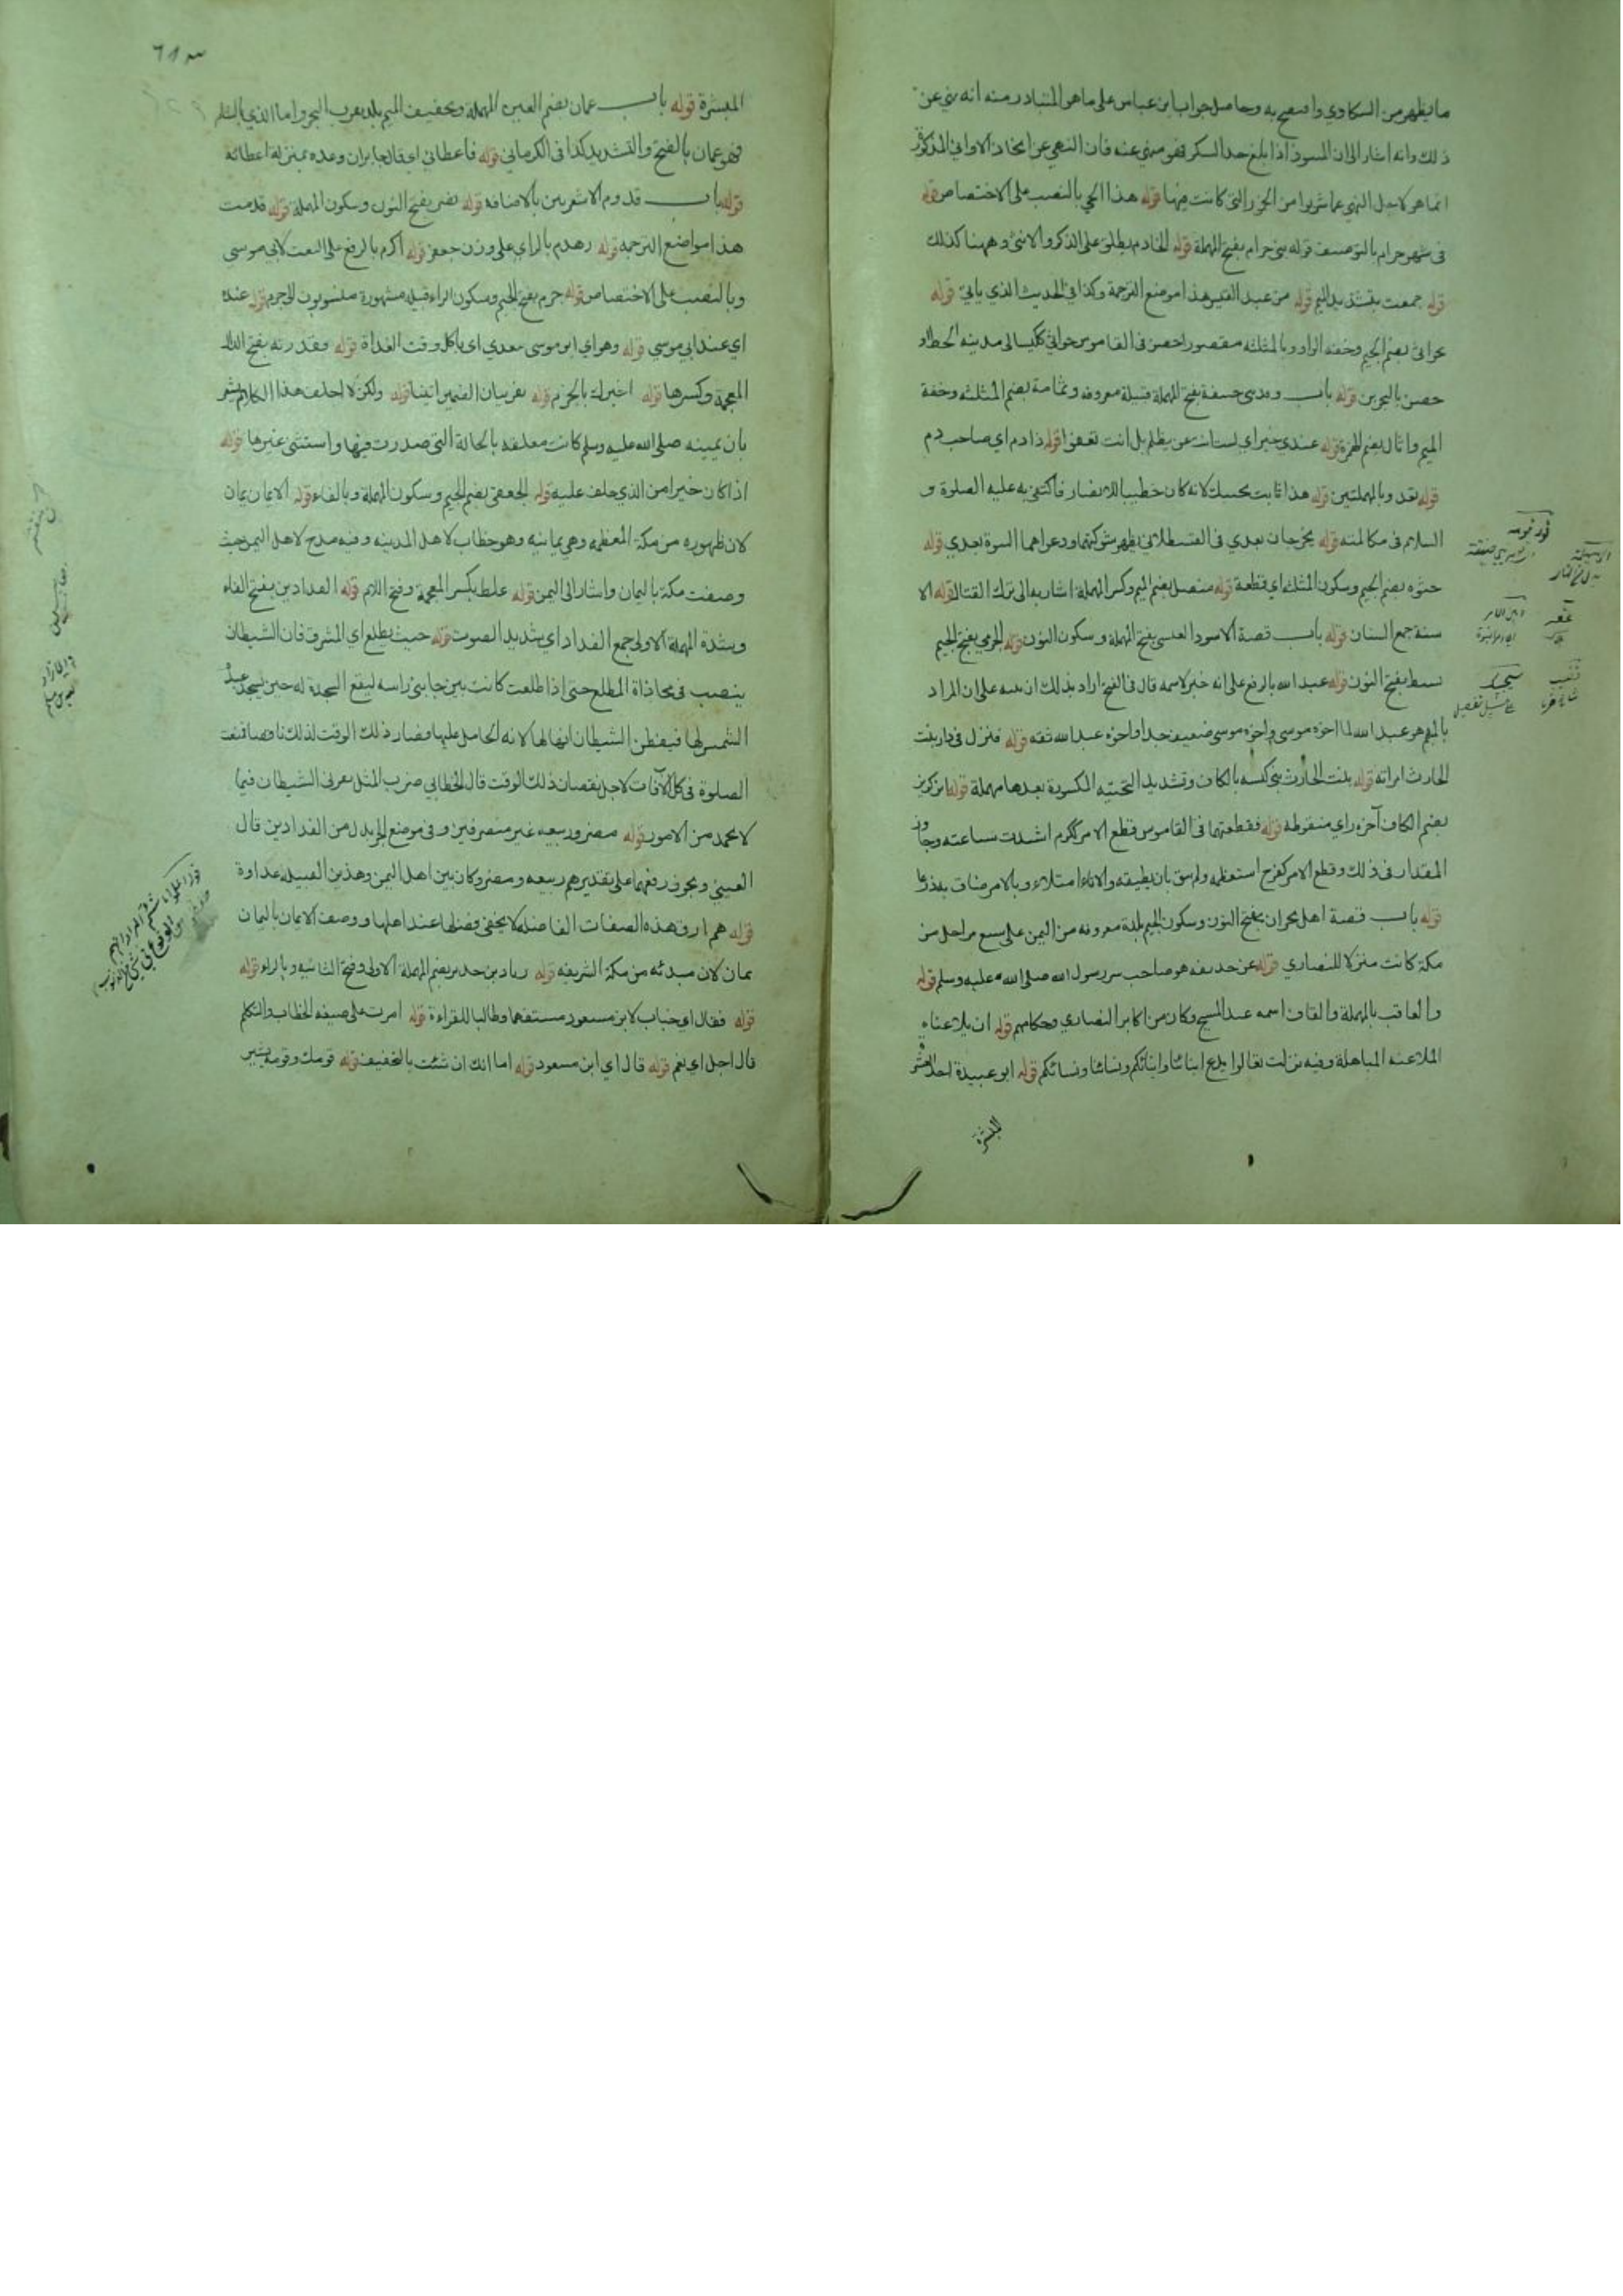 ما يظهر من السكاوي وا صفح به وحاصل جواب ابن عباس على ما هو المتبادر منه انه نهي عن
ذلك وانه اشار الى ان المسود اذا بلغ حد السكر فهو منهي عنه فان النهي عن اتخاذ الاواني المذكورة
انما هو لاجل النهي عما شربوا من الخمر التي كانت فيها قوله هذا الحي بالنصب على الاختصاص قوله
في شهر حرام بالتوصيف قوله بني حرام بفتح المهملة قوله الخادم يطلق على الذكر والانثى وههنا كذلك
قوله جمعت بتشديد الميم قوله من عبد القيس هذا موضع الترجمة وكذا في الحديث الذي ياتي قوله
جواثى بضم الجيم وخفة الواو وبالمثلثة مقصورا حصن في القاموس جواثى ككسالى مدينة الخط او
حصن بالبحرين قوله باب وفد بني حنيفة بفتح المهملة قبيلة معروفة وثمامة بضم المثلثة وخفة
الميم واثال بضم الهمزة قوله عندي خير اي لست ممن يظلم بل انت تعفو قوله ذا دم اي صاحب دم
قوله تعد وبالمهملتين قوله هذا ثابت يجيبك لانه كان خطيب الانصار فاكتفى به عليه الصلوة و
السلام في مكالمته قوله يخرجان بعدي في القسطلاني يظهر شوكتهما ودعواهما النبوة بعدي قوله
جثوة بضم الجيم وسكون المثلثة اي قطعة قوله منصل بضم الميم وكسر المهملة اشار به الى ترك القتال قوله الا
سنة جمع السنان قوله باب قصة الاسود العنسي بفتح المهملة وسكون النون قوله الجرمي بفتح الجيم
نسط بفتح النون قوله عبد الله بالرفع على انه خبر لاسمه قال في الفتح اراد بذلك ان ينبه على ان المراد
بالمبهم هو عبد الله لا اخوه موسى واخوه موسى ضعيف جدا واخوه عبد الله ثقه قوله فنزل في دار بنت
الحارث امراته قوله بنت الحارث بن كيسه بالكاف وتشديد التحتيه المكسورة بعدها مهملة قوله ابن كريز
بضم الكاف آخره زاي منقوطة قوله فقطعتهما في القاموس فظع الامر ككرم اشتدت شناعته وجاوز
المقدار في ذلك وفظع الامر كفرح استعظمه ولم يثق بان يطيقه والاناء امتلاء وبالامر ضاق به ذرعا
قوله باب قصة اهل نجران بفتح النون وسكون الجيم بلدة معروفه من اليمن على سبع مراحل من
مكة كانت منزلا للنصاري قوله عن حذيفه هو صاحب سر رسول الله صلى الله عليه وسلم قوله
والعاقب بالمهملة والقاف اسمه عبد المسيح وكان من اكابر النصاري وحكامهم قوله ان يلاعناه
الملاعنه المباهلة وفيه نزلت تعالوا ندع ابنائنا وابنائكم ونسائنا ونسائكم قوله ابو عبيدة احد العشرة
المبشرة
المبشرة قوله باب عمان بضم العين المهملة وتخفيف الميم بلد بقرب البحر واما الذي بالشام
فهو عمان بالفتح والتشديد كذا في الكرماني قوله فاعطاني اي قال جابر ان وعده بمنزلة اعطائه
قوله باب قدوم الاشعريين بالاضافة قوله نضر بفتح النون وسكون المهملة قوله قدمت
هذا مواضع الترجمة قوله زهدم بالزاي على وزن جعفر قوله اكرم بالرفع على النعت لابي موسى
وبالنصب على الاختصاص قوله جرم بفتح الجيم وسكون الراء قبيلة مشهورة منسوبون الى جرم قوله عنده
اي عند ابي موسي قوله وهو اي ابو موسى يتغدي اي ياكل وقت الغداة قوله فقذرته بفتح الذال
المعجمة وكسرها قوله اخبرك بالجزم قوله نفر بيان الضمير اتينا قوله ولكن لا احلف هذا الكلام مشعر
بان يمينه صلى الله عليه وسلم كانت معلقه بالحالة التي صدرت فيها واستثنى غيرها قوله
اذا كان خيرا من الذي حلف عليه قوله الجعفي بضم الجيم وسكون المهملة وبالفاء قوله الايمان يمان
لان ظهوره من مكة المعظمه وهي يمانيه وهو خطاب لاهل المدينه وفيه مدح لاهل اليمن حيث
وصفت مكة باليمان واشار الى اليمن قوله غلظ بكسر المعجمة وفتح اللام قوله الفدادين بفتح الفاء
وبشدة المهملة الاولى جمع الفداد اي شديد الصوت قوله حيث يطلع اي المشرق فان الشيطان
ينصب في محاذاة المطلع حتى اذا طلعت كانت بين جانبي راسه ليقع السجدة له حين يسجد عبدة
الشمس لها فيظن الشيطان انها لها لانه الحامل عليها فصار ذلك الوقت لذلك ناقصا فنعت
الصلوة في كل الآفات لاجل نقصان ذلك الوقت قال الخطابي ضرب المثل بقرني الشيطان فيما
لا يحمد من الامور قوله مضر وربيعه غير منصرفين وفي موضع الجر بدل من الفدادين قال
العيني ويجوز رفعهما على تقدير هم ربيعه ومضر وكان بين اهل اليمن وهذين القبيله عداوة
قوله هم ارق هذه الصفات الفاضله لا يخفى فضلها عند اهلها ووصف الايمان باليمان
يمان لان مبدئه من مكة الشريفه قوله زياد بن حدير بضم المهملة الاولى وفتح الثانيه وبالراء قوله
قوله فقال اي خباب لابن مسعود مستفهما وطالبا للقراءة قوله امرت على صيغه الخطاب والتكلم
قال اجل اي نعم قوله قال اي ابن مسعود قوله اما انك ان شئت بالتخفيف قوله قومك وقومه يشير